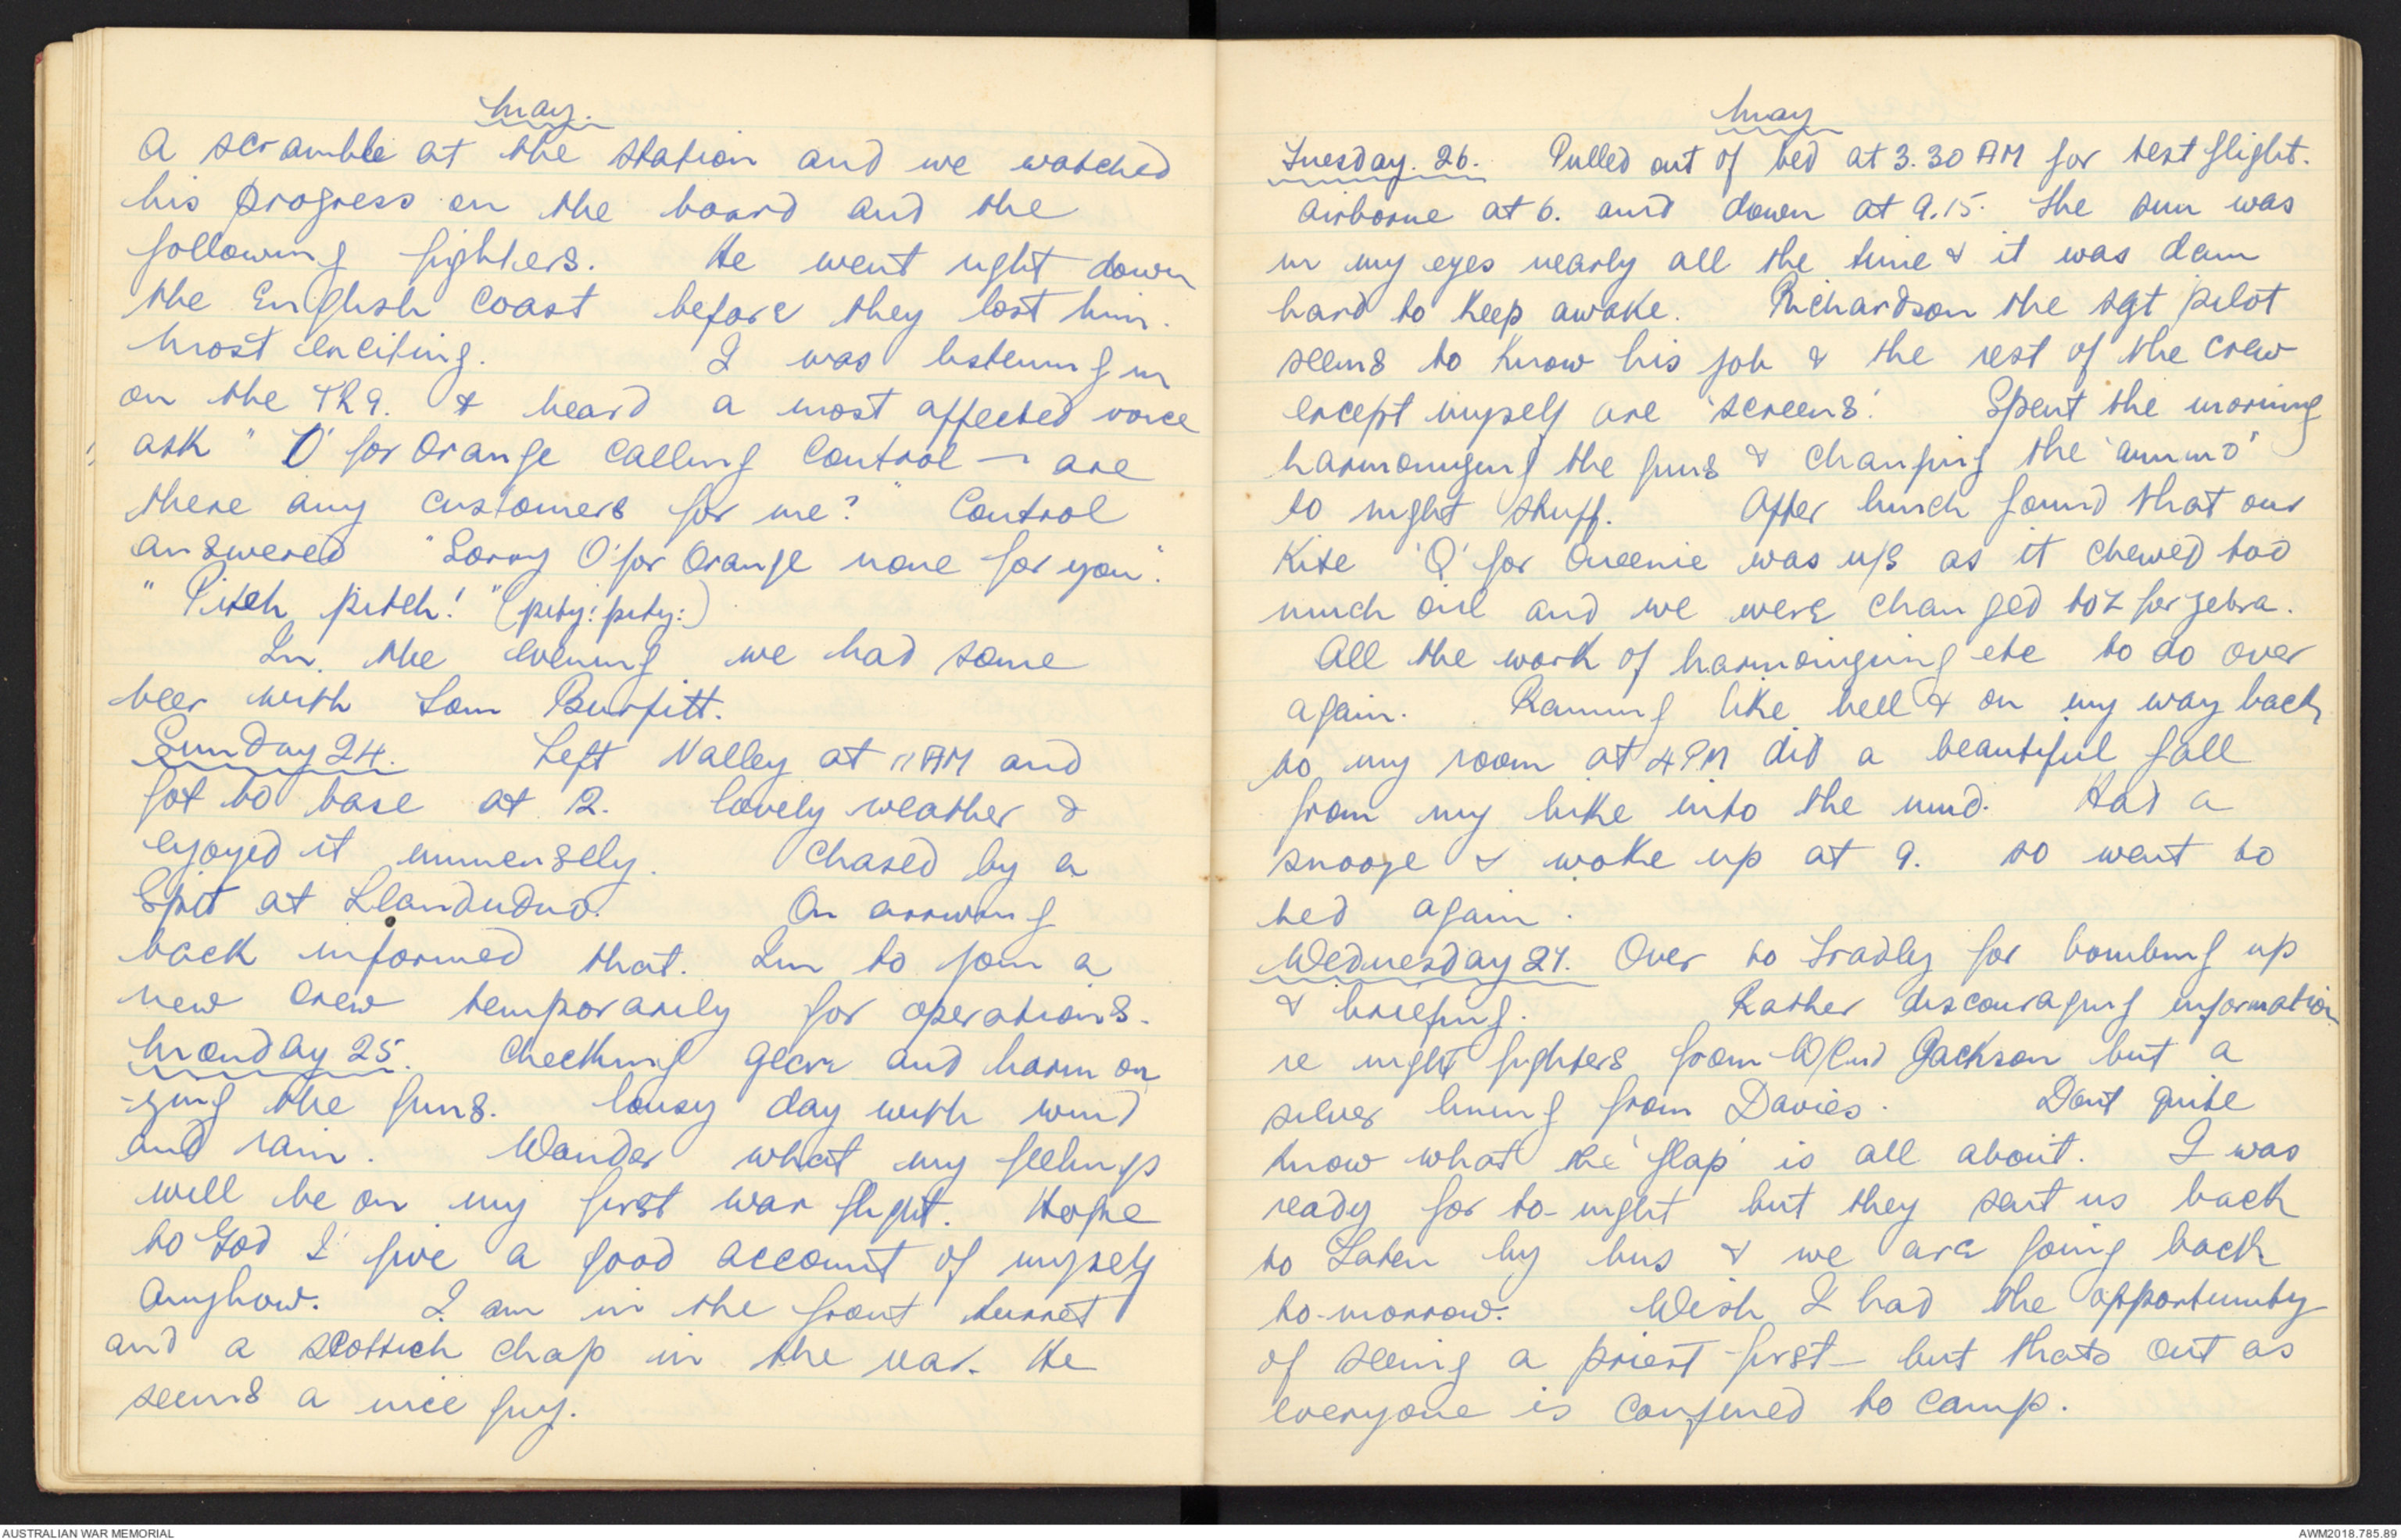 May.
A scramble at the station and we watched
his progress on the board and the
following fighters. He went right down
the English coast before they lost him.
Most exciting. I was listening in
on the TR9. & heard a most affected voice
ask "'O' for Orange calling Control — are
there any customers for me?" Control
answered "Sorry 'O' for Orange none for you".
"Piteh piteh!" (pity: pity:)
In the evening we had some
beer with Tom Burfitt.
Sunday 24. Left Valley at 11 AM and
got to base at 12. lovely weather &
ejoyed it immensely. Chased by a
Spit at Llandudno. On arriving
back informed that. Im to join a
new crew temporarily for operations.
Monday 25. Checking gear and harmon
-izing the guns. lousy day with wind
and rain. Wonder what my feelings
will be on my first war flight. Hope
to God I give a good account of myself
anyhow. I am in the front turret
and a Scottich chap in the rear. He
seems a nice guy.
May
Tuesday. 26. Pulled out of bed at 3.30 AM for test flight.
Airborne at 6. and down at 9.15. The sun was
in my eyes nearly all the time & it was dam
hard to keep awake. Richardson the sgt pilot
seems to know his job & the rest of the crew
except myself are 'screens'. Spent the morning
harmonizing the guns & changing the 'ammo'
to night stuff. After lunch found that our
Kite 'Q' for Queenie was u/s as it chewed too
much oil and we were changed to Z for zebra.
All the work of harmonizing etc to do over
again. Raining like hell & on my way back
to my room at 4 PM did a beautiful fall
from my bike into the mud. Had a
snooze & woke up at 9. so went to
bed again.
Wednesday 27. Over to Fradley for bombing up
& briefing. Rather discouraging information
re night fighters from W/Cmd Jackson but a
silver lining from Davies. Dont quite
know what the 'flap' is all about. I was
ready for to-night but they sent us back
to Laten by bus & we are going back
to-morrow. Wish I had the opportunity
of seeing a priest first — but thats out as
everyone is confined to camp.
AUSTRALIAN WAR MEMORIAL
AWM2018.785.89